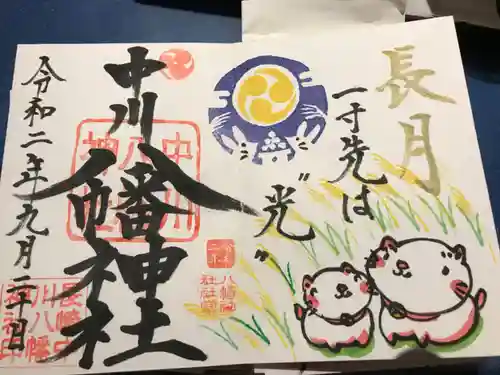 長月
一寸先は
"光"
中川八幡神社
令和二年九月二十日
中川八幡神社
長崎中川八幡神社印